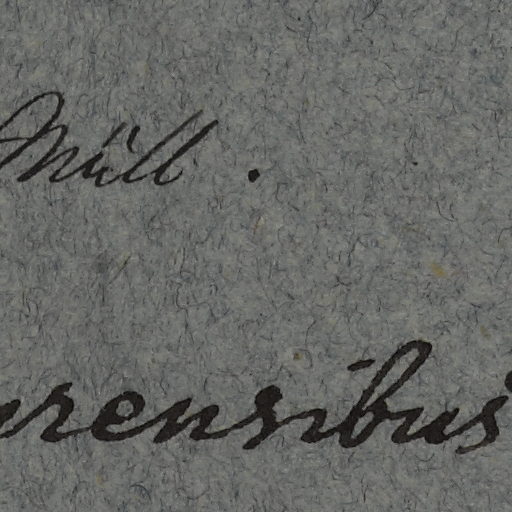 Müll.
rensibus